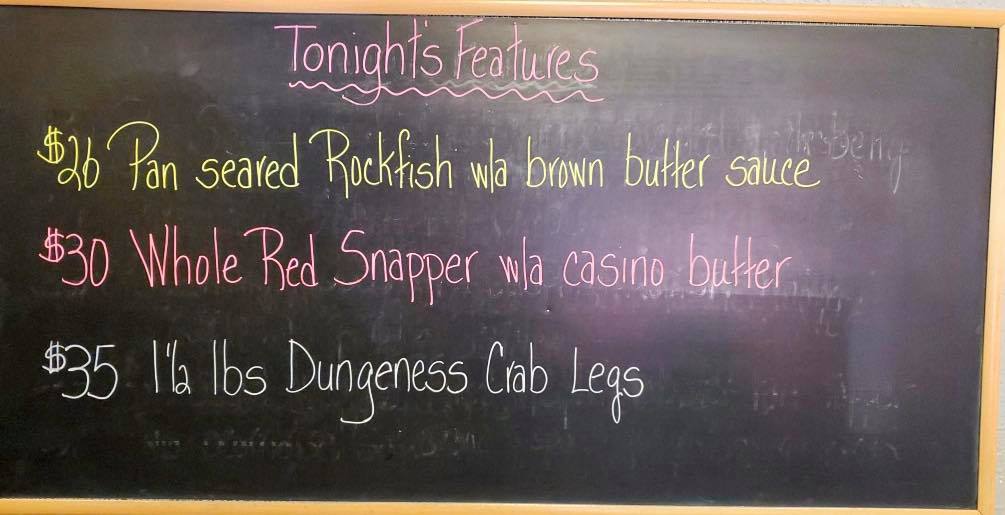 Tonight's Features
$26 Pan seared Rockfish w/a brown butter sauce
$30 Whole Red Snapper w/a casino butter
$35 1 1/2 lbs Dungeness Crab Legs